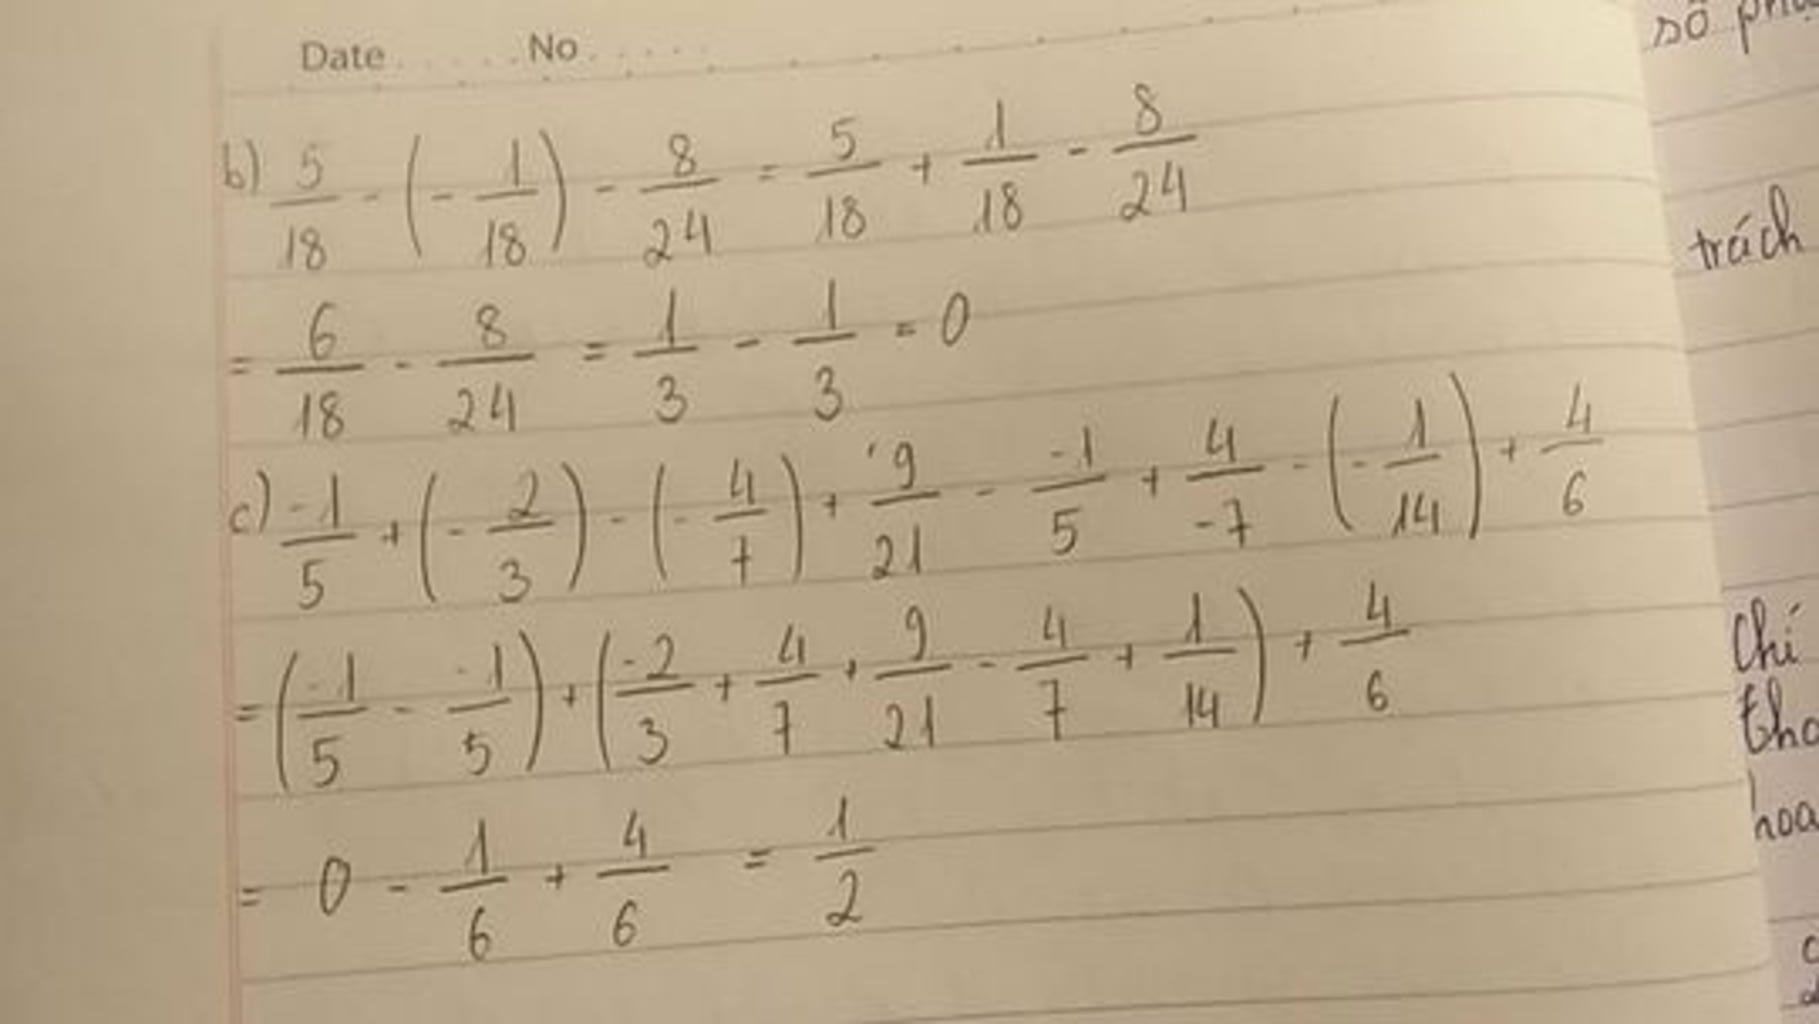 Date ..... No .....
b) 5/18 - (- 1/18) - 8/24 = 5/18 + 1/18 - 8/24
= 6/18 - 8/24 = 1/3 - 1/3 = 0
c) -1/5 + (- 2/3) - (- 4/7) + 9/21 - -1/5 + 4/-7 - (- 1/14) + 4/6
= (-1/5 - -1/5) + (-2/3 + 4/7 + 9/21 - 4/7 + 1/14) + 4/6
= 0 - 1/6 + 4/6 = 1/2
số
trách
Chí